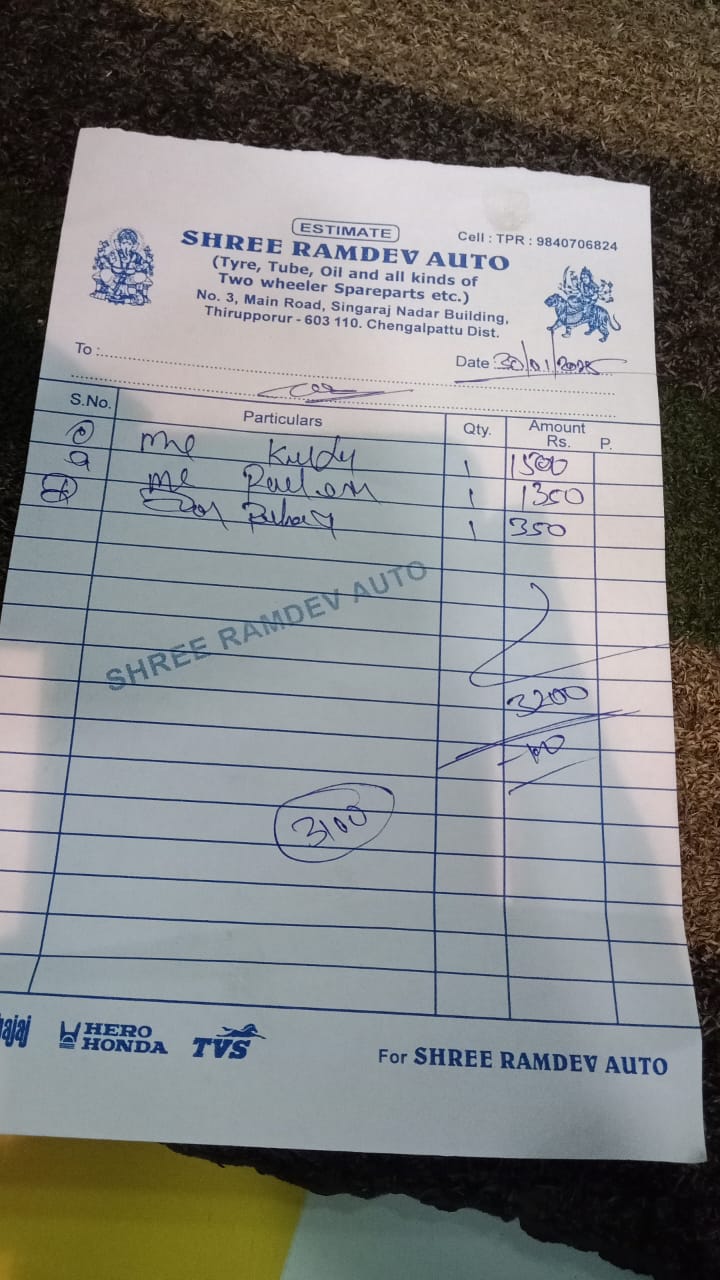 ESTIMATE
Cell : TPR : 9840706824
SHREE RAMDEV AUTO
(Tyre, Tube, Oil and all kinds of
Two wheeler Spareparts etc.)
No. 3, Main Road, Singaraj Nadar Building,
Thirupporur - 603 110. Chengalpattu Dist.
To :
Date : 30/01/2025
S.No. Particulars Qty. Amount Rs. P.
1 1500
1 1350
1 350
SHREE RAMDEV AUTO
3200
-100
3100
HERO HONDA TVS
For SHREE RAMDEV AUTO